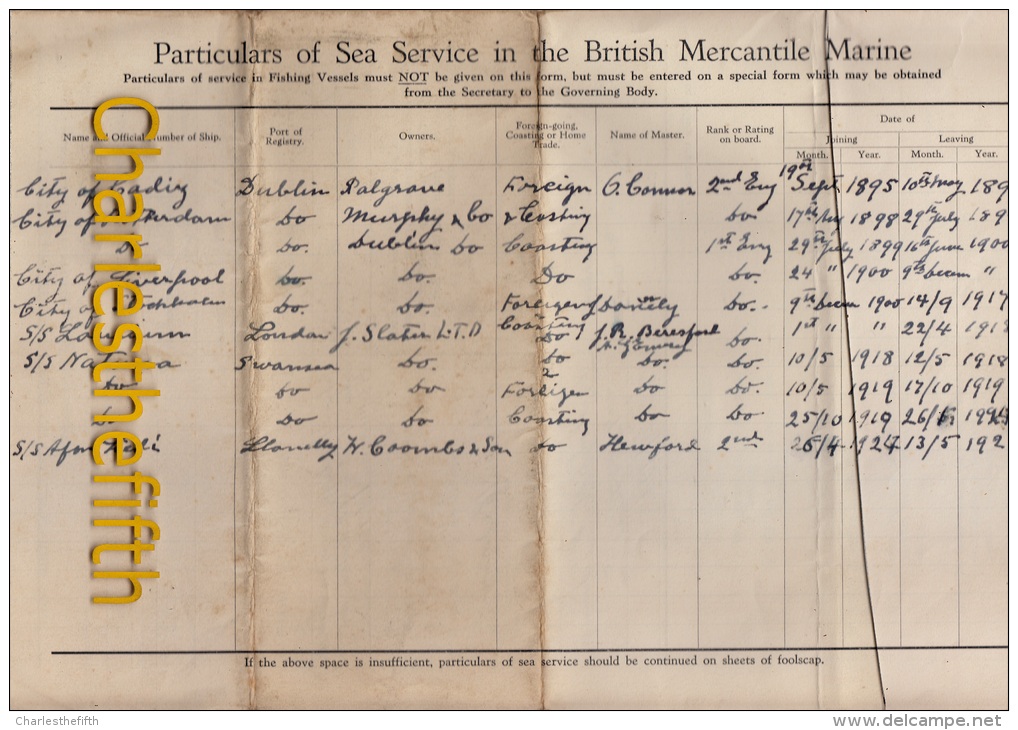 Particulars of Sea Service in the British Mercantile Marine
Particulars of service in Fishing Vessels must NOT be given on this form, but must be entered on a special form which may be obtained
from the Secretary to the Governing Body.
Name and Official Number of Ship. Port of Registry. Owners. Foreign-going, Coasting or Home Trade. Name of Master. Rank or Rating on board. Date of
Joining Leaving
Month. Year. Month. Year.
City of Cadiz Dublin Palgrave Foreign O. Connor 2nd Eng 19th Sept 1895 10th May 189
City of do Murphy & Co & Costing do 17th 1898 29th July 189
Do do. Dublin do Coasting 1st Eng 29th July 1899 16th June 1900
City of Liverpool do. do. Do do. 24 " 1900 9th decem "
City of do. do. Foreign do. 9th Decem 1900 14/9 1917
S/S London J. Slater LTD Coasting do J. R. Beresford do. 1st " " 22/4 191
S/S Swansea do. do do. do. 10/5 1918 12/5 1918
do do do Foreign do do. 10/5 1919 17/10 1919
do do do Coasting do do 25/10 1919 26/
S/S Llanelly W. Coombs & Son do Hewford 2nd 26/4 1924 13/5 192
If the above space is insufficient, particulars of sea service should be continued on sheets of foolscap.
Charlesthefifth
Charlesthefifth
www.delcampe.net